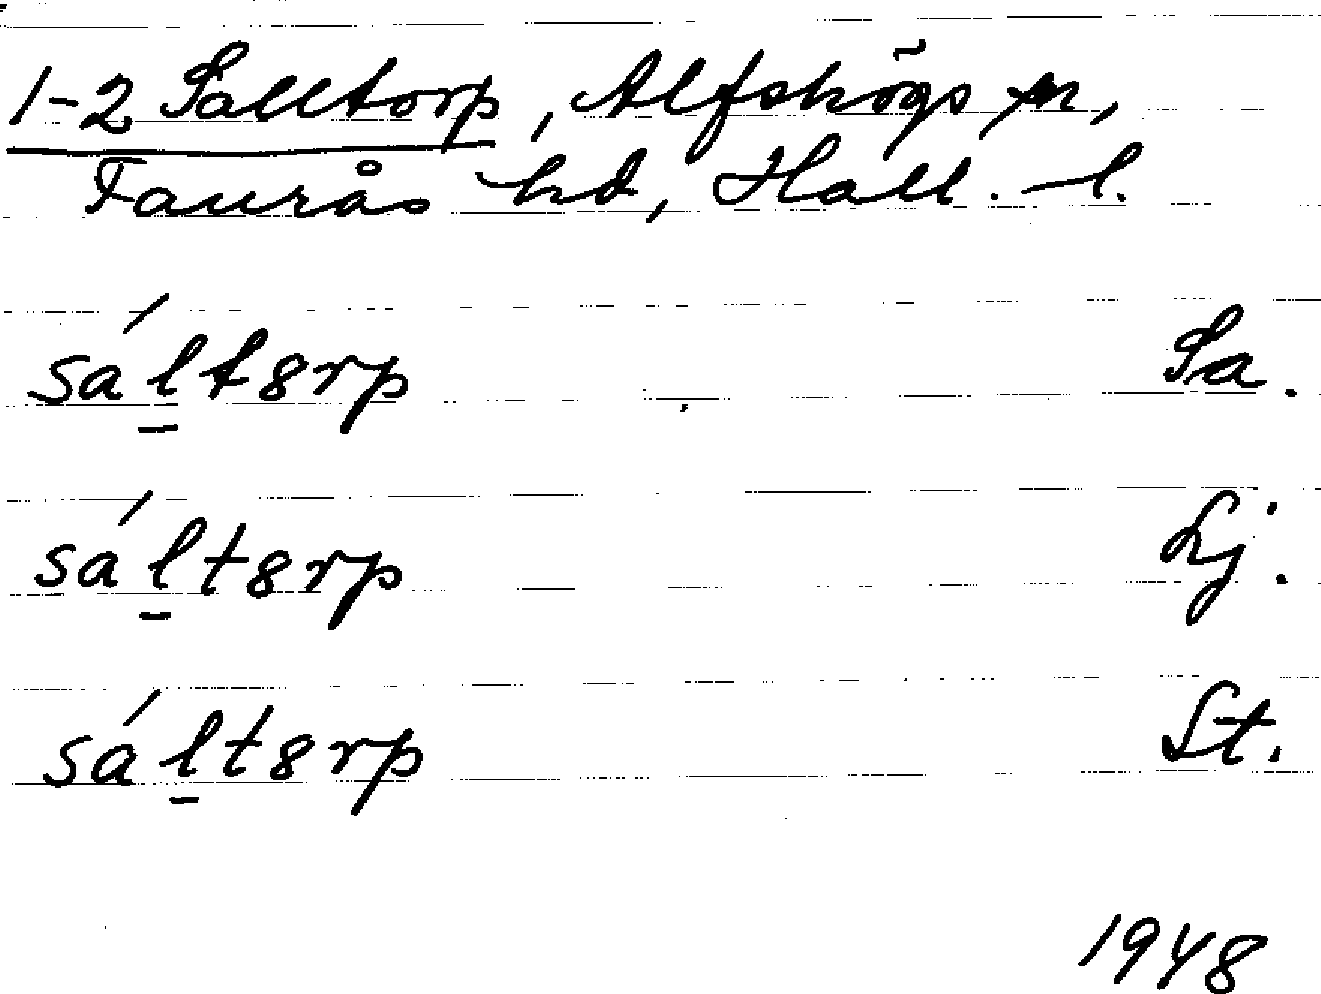 1-2 Salltorp, Alfshögs sn,
Faurås hd, Hall. l.
sáḻtɞrp Sa.
sáḻtɞrp Lj.
sáḻtɞrp St.
1948